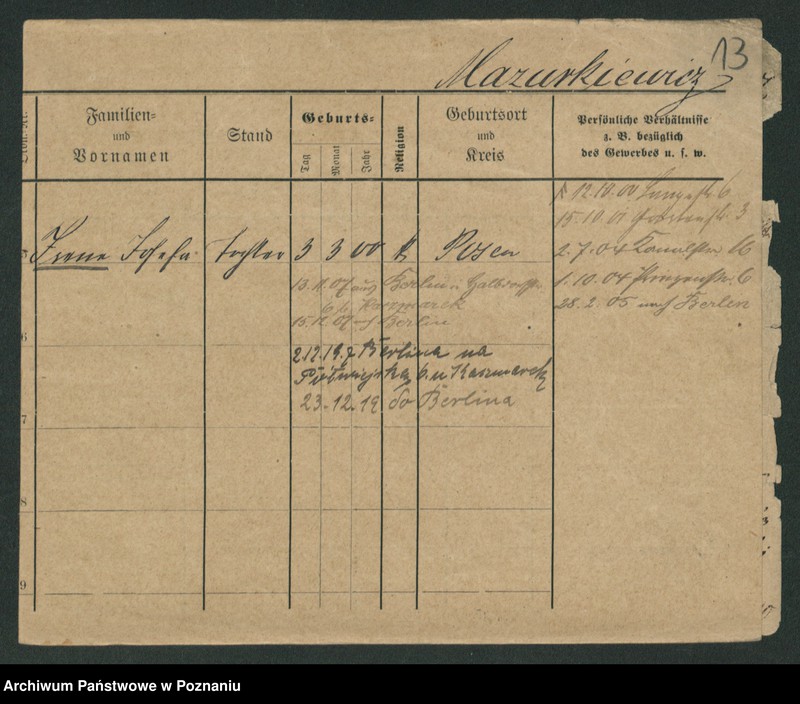 13
Mazurkiewicz
Familien-
und
Vornamen
Stand
Geburts-
Tag
Monat
Jahr
Religion
Geburtsort
und
Kreis
Persönliche Verhältnisse
z. B. bezüglich
des Gewerbes u. s. w.
12.10.00 Langestr. 6
15.10.01 3
5 Irene Josefa Tochter 3 3 00 k Posen
2.7.04 Kanalstr. 16
1.10.04 6
28.2.05 nach Berlin
13.11.07 aus Berlin n. Halbdorfstr.
6 b/ Kaczmarek
15.12.07 nach Berlin
6
2.12.19 z Berlina na
Półwiejską 6 u Kaczmarek
23.12.19 do Berlina
7
8
9
Archiwum Państwowe w Poznaniu